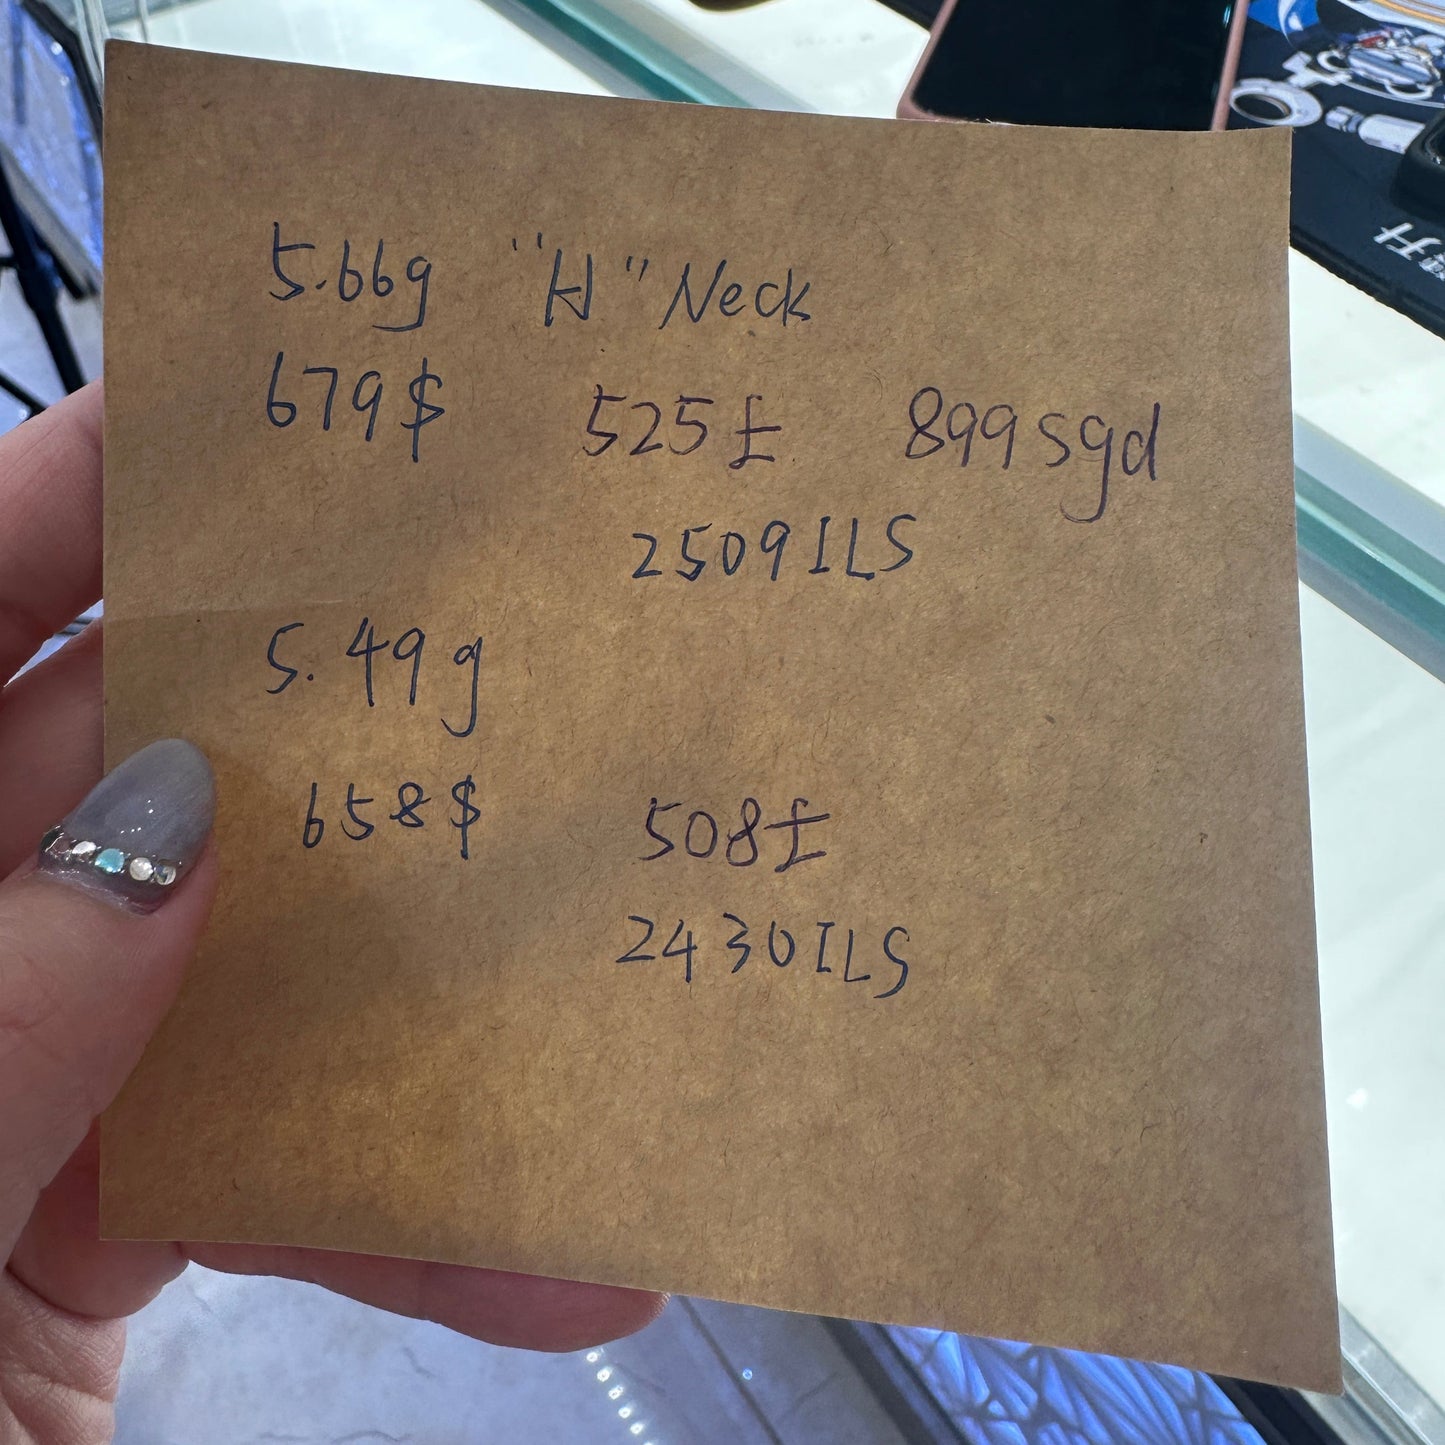 5.66g "H" Neck
679$ 525£ 899sgd
2509ILS
5.49g
658$ 508£
2430ILS